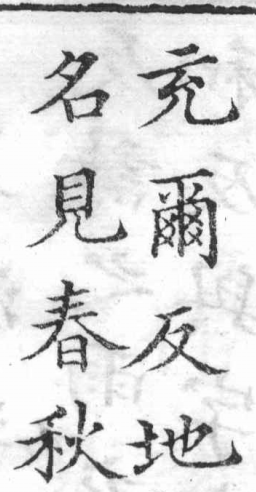 充爾反地
名見春秋